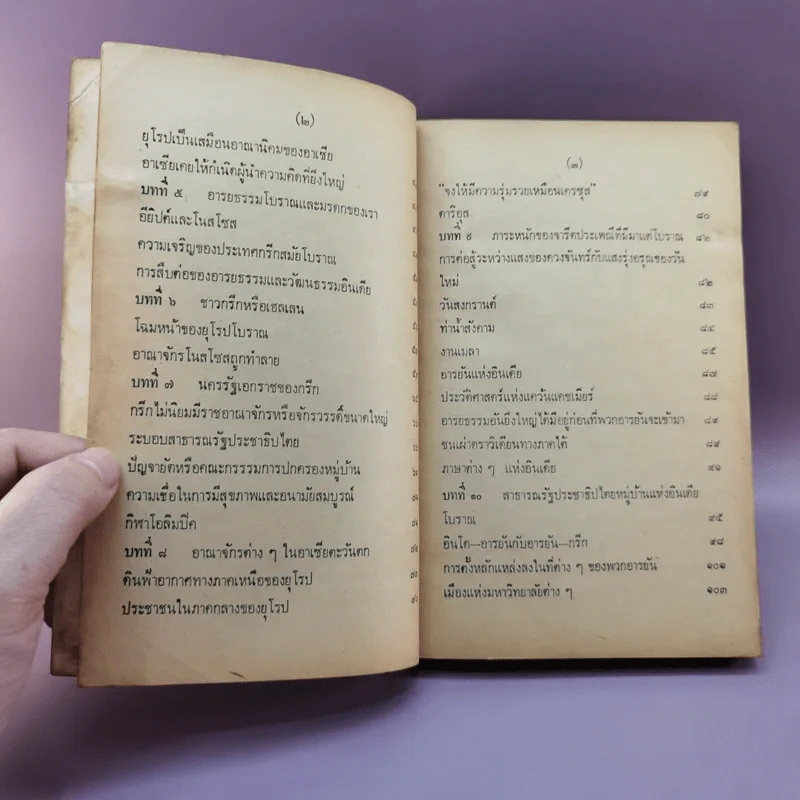 (๒)
ยุโรปเป็นเสมือนอาณานิคมของอาเซีย
อาเซียเคยให้กำเนิดผู้นำความคิดที่ยิ่งใหญ่
บทที่ ๕ อารยธรรมโบราณและมรดกของเรา
อียิปต์และโนสโซส
ความเจริญของประเทศกรีกสมัยโบราณ
การสืบต่อของอารยธรรมและวัฒนธรรมอินเดีย
บทที่ ๖ ชาวกรีกหรือเฮลเลน
โฉมหน้าของยุโรปโบราณ
อาณาจักรโนสโซสถูกทำลาย
บทที่ ๗ นครรัฐเอกราชของกรีก
กรีกไม่นิยมมีราชอาณาจักรหรือจักรวรรดิ์ขนาดใหญ่
ระบอบสาธารณรัฐประชาธิปไตย
ปัญจายัตหรือคณะกรรรมการปกครองหมู่บ้าน
ความเชื่อในการมีสุขภาพและอนามัยสมบูรณ์
กีฬาโอลิมปิค
บทที่ ๘ อาณาจักรต่าง ๆ ในอาเซียตะวันตก
ดินฟ้าอากาศทางภาคเหนือของยุโรป
ประชาชนในภาคกลางของยุโรป
(๓)
"จงให้มีความรุ่มรวยเหมือนเครซุส" ๗๙
ดาริอุส ๘๐
บทที่ ๙ ภาระหนักของจารีตประเพณีที่มีมาแต่โบราณ ๘๒
การต่อสู้ระหว่างแสงของดวงจันทร์กับแสงรุ่งอรุณของวัน
ใหม่ ๘๒
วันสงกรานต์ ๘๓
ท่าน้ำสังคาม ๘๔
งานเมลา ๘๕
อารยันแห่งอินเดีย ๘๗
ประวัติศาสตร์แห่งแคว้นแคชเมียร์ ๘๘
อารยธรรมอันยิ่งใหญ่ได้มีอยู่ก่อนที่พวกอารยันจะเข้ามา ๘๙
ชนเผ่าดราวิเดียนทางภาคใต้ ๘๙
ภาษาต่าง ๆ แห่งอินเดีย ๙๑
บทที่ ๑๐ สาธารณรัฐประชาธิปไตยหมู่บ้านแห่งอินเดีย
โบราณ ๙๕
อินโด—อารยันกับอารยัน—กรีก ๙๘
การตั้งหลักแหล่งลงในที่ต่าง ๆ ของพวกอารยัน ๑๐๑
เมืองแห่งมหาวิทยาลัยต่าง ๆ ๑๐๓